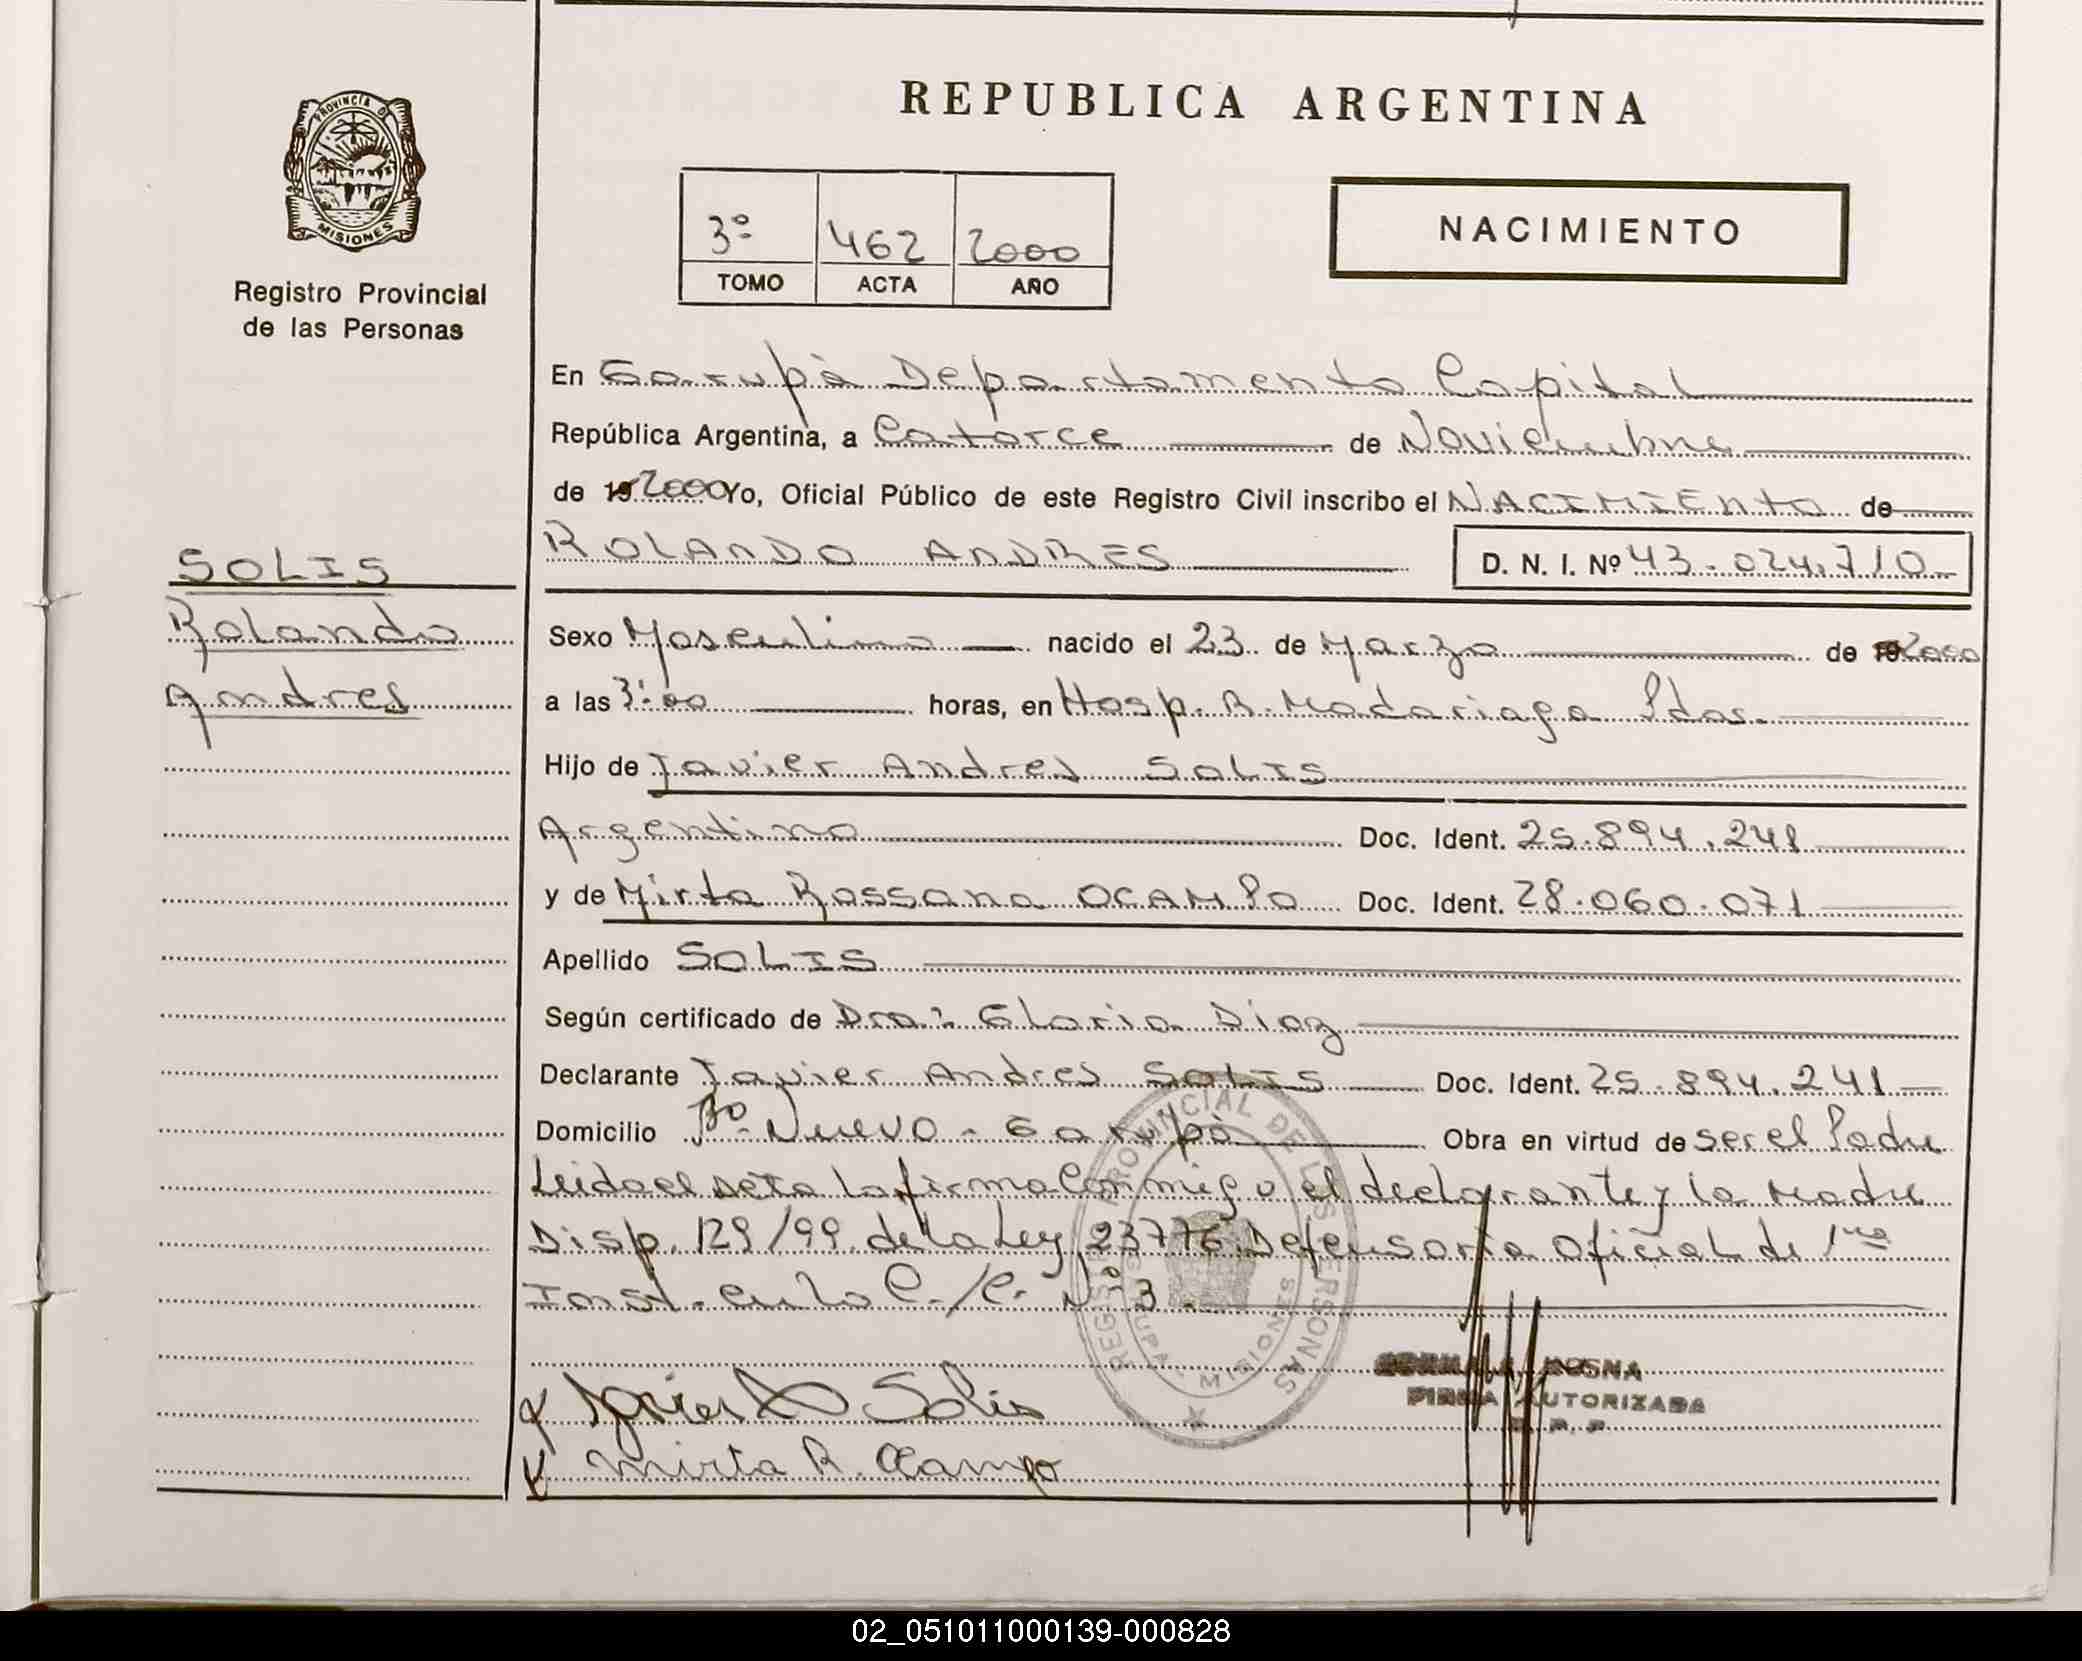 REPUBLICA ARGENTINA
PROVINCIA D
MISIONES
Registro Provincial
de las Personas
3º 462 2000
TOMO ACTA AÑO
NACIMIENTO
En Garupà Departamento Capital
República Argentina, a Catorce de Noviembre
de 19 2000 Yo, Oficial Público de este Registro Civil inscribo el NACIMIENTO de
ROLANDO ANDRES
D. N. I. Nº 43.024.710
SOLIS
Rolando
Andres
Sexo Masculino nacido el 23 de Marzo de 19 2000
a las 3:00 horas, en Hosp. R. Madariaga Pdas.
Hijo de Javier Andres SOLIS
Argentino Doc. Ident. 25.894.241
y de Mirta Rossana OCAMPO Doc. Ident. 28.060.071
Apellido SOLIS
Según certificado de Dra: Gloria Diaz
Declarante Javier Andres SOLIS Doc. Ident. 25.894.241
Domicilio Bº Nuevo - Garupà Obra en virtud de ser el Padre
Leida el acta la firma Conmigo el declarante y la Madre
Disp. 129/99 de la Ley 23776 Defensoria Oficial de 1ra
Inst. en lo C./C. Nº 3.
REGISTRO PROVINCIAL DE LAS PERSONAS
GARUPA - MISIONES
FIRMA AUTORIZADA
R. P. P.
Javier A Solis
Mirta R. Ocampo
02_051011000139-000828